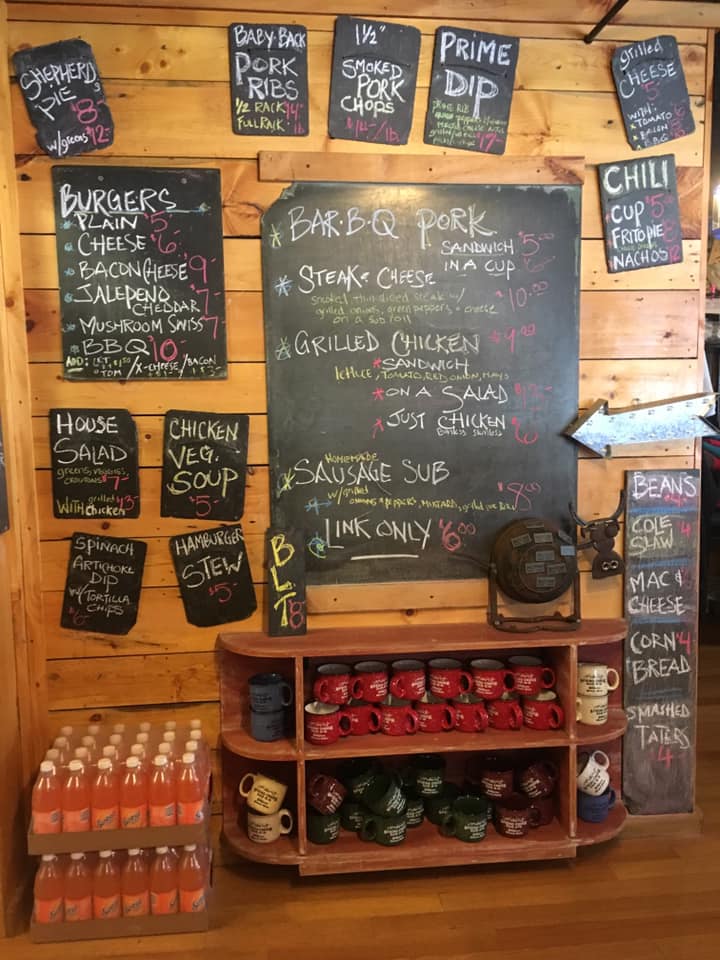 SHEPHERD'S
PIE $8-
w/greens $12-
BABY BACK
PORK
RIBS
1/2 RACK
FULL RACK
1 1/2"
SMOKED
PORK
CHOPS
PRIME
DIP
PRIME RIB
17-
grilled
CHEESE
5-
WITH:
x TOMATO
x BACON
x B.B.Q
CHILI
CUP $5-
FRITO PIE
NACHOS
BURGERS
PLAIN $5-
CHEESE $6-
BACON CHEESE 9-
JALEPENO
CHEDDAR 7-
MUSHROOM SWISS 7
BBQ $10-
ADD:
X-CHEESE / BACON
BAR·B·Q PORK
SANDWICH $5.00
IN A CUP
STEAK & CHEESE
$10.00
smoked thin sliced steak w/
grilled onions, green peppers & cheese
on a sub roll
GRILLED CHICKEN
SANDWICH
LETTUCE, TOMATO, RED ONION, MAYO
ON A SALAD
JUST CHICKEN 6
HOMEMADE
SAUSAGE SUB
w/ grilled
$8.00
LINK ONLY $6.00
HOUSE
SALAD
$7-
grilled
WITH chicken
CHICKEN
VEG.
SOUP
$5-
SPINACH
ARTICHOKE
DIP
w/TORTILLA
CHIPS
HAMBURGER
STEW
$5-
BLT 8
BEANS
$4
COLE
SLAW 4
MAC &
CHEESE
CORN $4
BREAD
SMASHED
TATERS
4